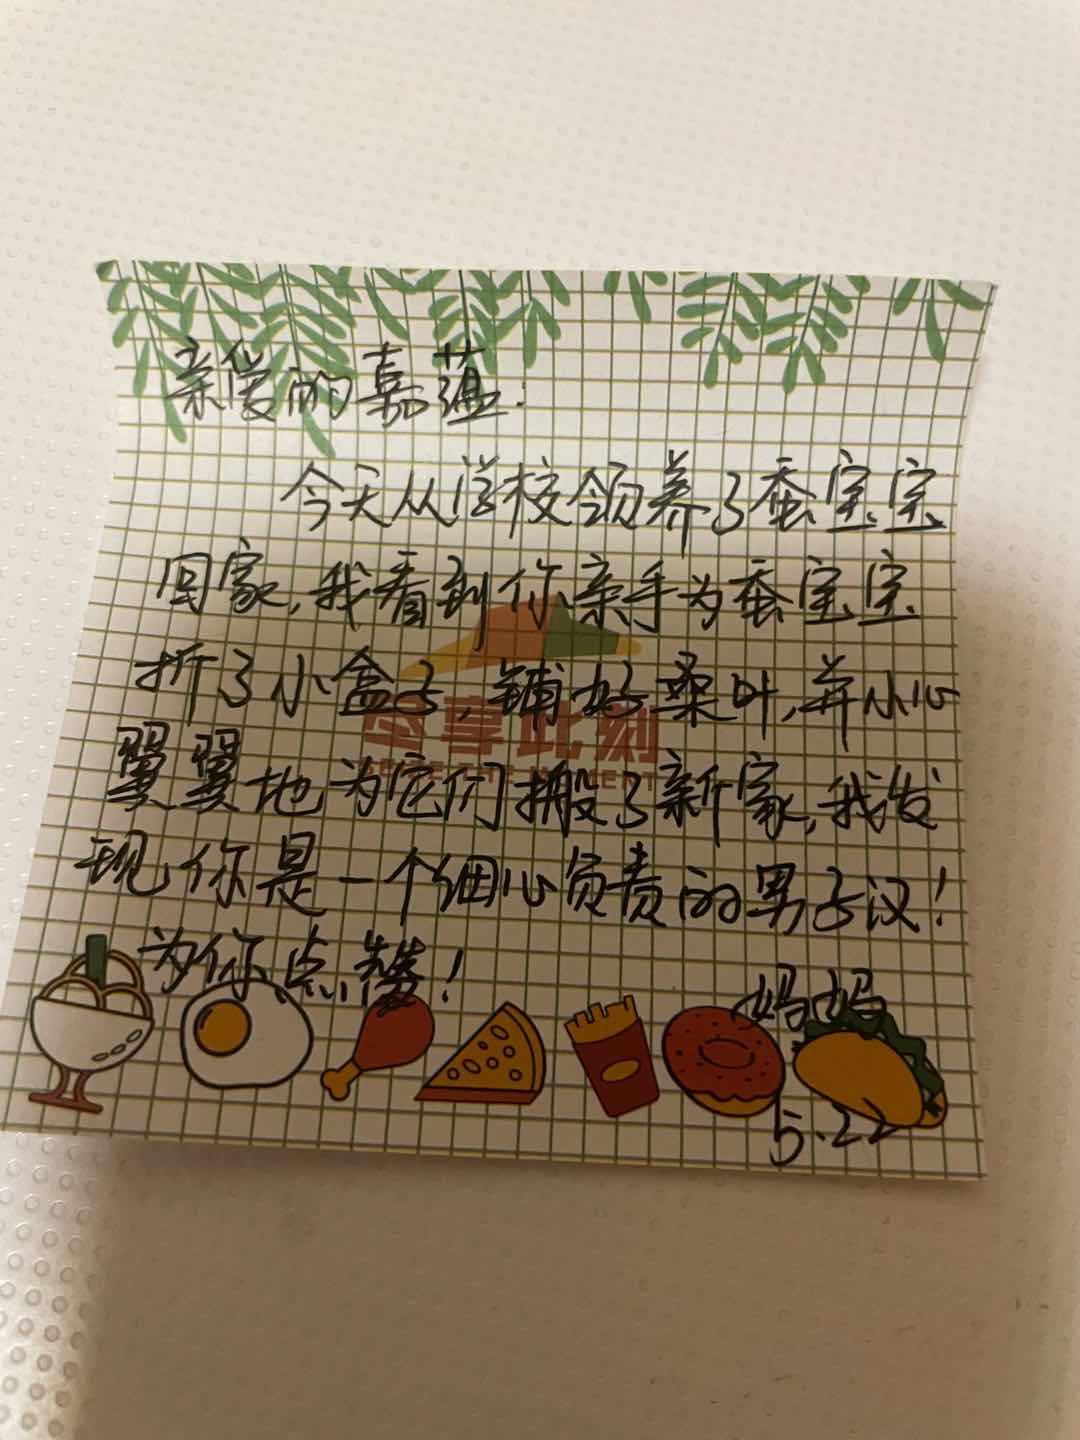 亲爱的嘉蕴:
今天从学校领养了蚕宝宝
回家,我看到你亲手为蚕宝宝
折了小盒子,铺好桑叶,并小心
尽享此刻
翼翼地为它们搬了新家,我发
现你是一个细心负责的男子汉!
为你点赞!
妈妈
5.22